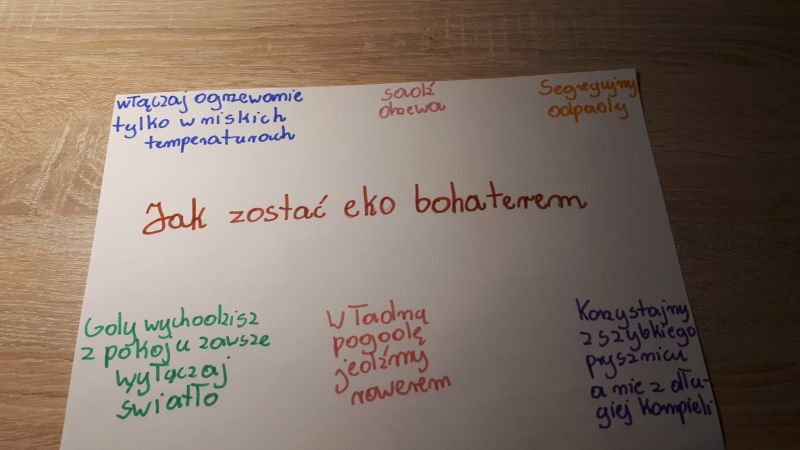 włączaj ogrzewanie
tylko w niskich
temperaturach
sadź
drzewa
Segregujmy
odpady
Jak zostać eko bohaterem
Gdy wychodzisz
z pokoju zawsze
wyłączaj
światło
W ładną
pogodę
jedźmy
rowerem
Korzystajmy
z szybkiego
prysznicu
a nie z dłu-
giej kąmpieli